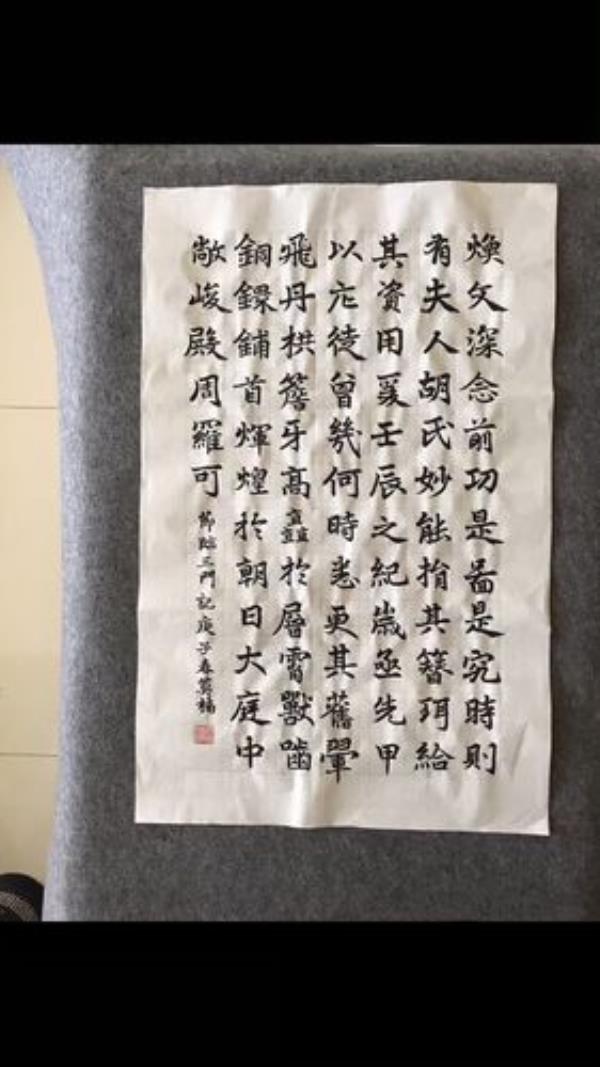 煥文深念前功是啚是究時則
有夫人胡氏妙能捐其簪珥給
其資用爰壬辰之紀歲亟先甲
以庀徒曾幾何時悉更其舊翬
飛丹栱簷牙高矗於層霄獸嚙
銅鐶鋪首煇煌於朝日大庭中
敞峻殿周羅可
節臨三門記庚子春